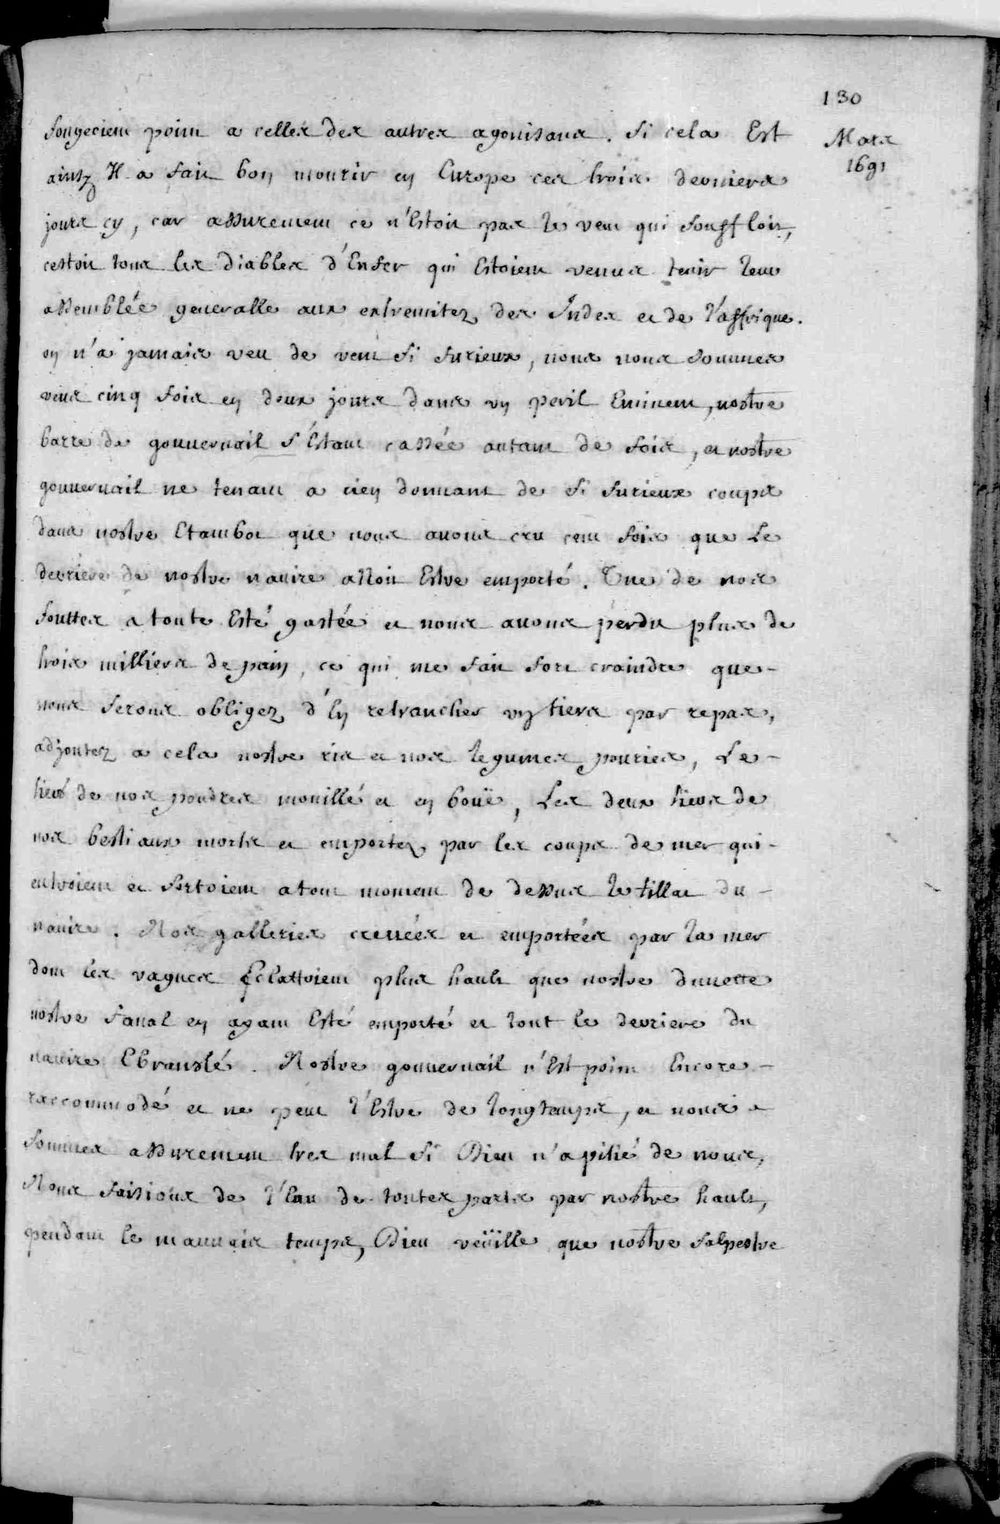 130
Mars
1691
songeoient point a celles des autres agonisans. Si cela Est
ainsy Il a fait bon mourir en Europe ces trois derniers
jours cy, car assurement ce n'Estoit pas le vent qui souffloit,
cestoit tous les diables d'Enfer qui Estoient venus tenir leur
assemblée generalle aux extremitez des Indes et de l'affrique.
on n'a jamais veu de vent si furieux, nous nous sommes
veus cinq fois en deux jours dans un peril Eminent, nostre
barre de gouvernail s'Estant cassée autant de fois, et nostre
gouvernail ne tenant a rien donnant de si furieux coups
dans nostre Etambot que nous avons cru cent fois que Le
derriere de nostre navire alloit Estre emporté. Une de nos
souttes a toute Esté gastée et nous avons perdu plus de
trois milliers de pain, ce qui me fait fort craindre que-
nous serons obligez d'En retrancher un tiers par repas,
adjoutez a cela nostre ris et nos legumes pouries, Le-
tiers de nos poudres mouillé et en bouë, Les deux tiers de
nos bestiaux morts et emportez par les coups de mer qui-
entroient et sortoient a tout moment de dessus le tillac du-
navire. Nos galleries crevées et emportées par la mer
dont les vagues Eclattoient plus hault que nostre dunette
nostre fanal en ayant Esté emporté et tout le derriere du
navire Ebranslé. Nostre gouvernail n'Est point Encore-
raccommodé et ne peut l'Estre de longtemps, et nous-
sommes assurement tres mal si Dieu n'a pitié de nous,
Nous faisions de l'Eau de toutes parts par nostre hault,
pendant le mauvais temps, Dieu veüille que nostre salpestre